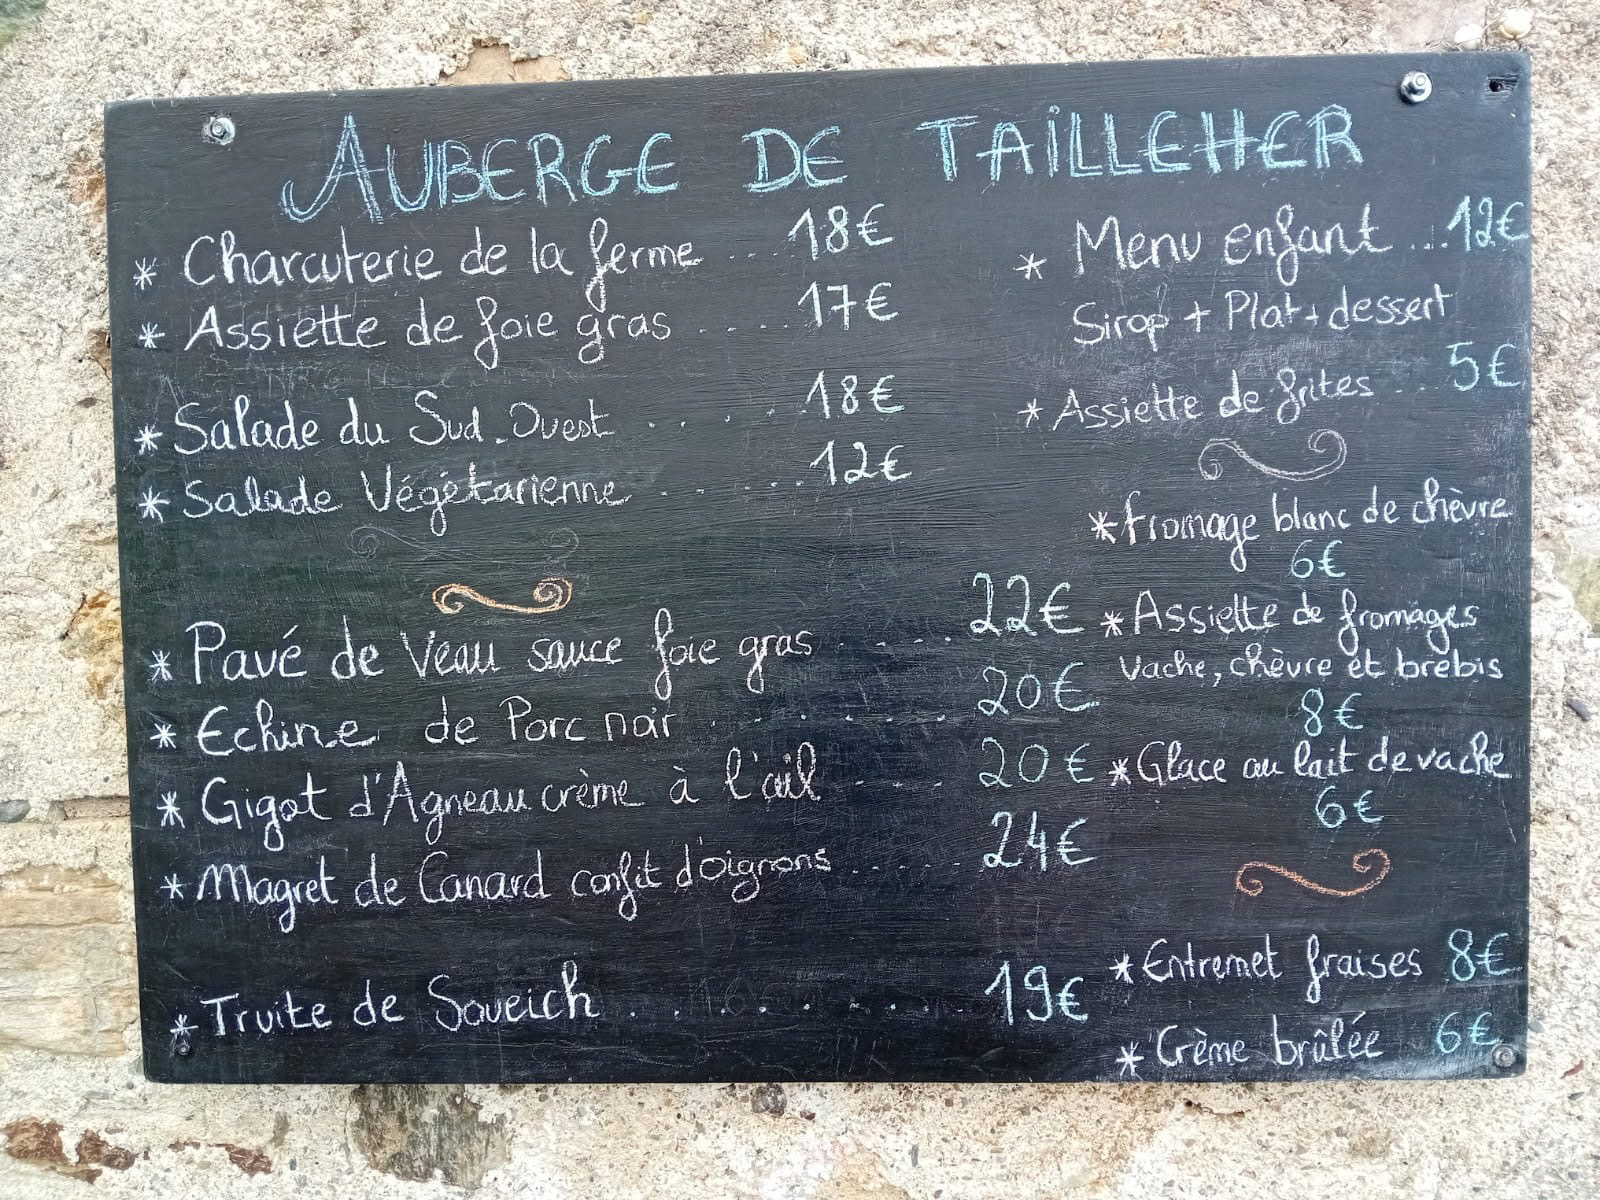 AUBERGE DE TAILLEHER
* Charcuterie de la ferme .... 18€
* Assiette de foie gras ..... 17€
* Salade du Sud-Ouest ..... 18€
* Salade Végétarienne ...... 12€
* Pavé de Veau sauce foie gras .... 22€
* Echine de Porc noir ........ 20€
* Gigot d'Agneau crème à l'ail .... 20€
* Magret de Canard confit d'oignons ..... 24€
* Truite de Soueich ......... 19€
* Menu enfant ...12€
Sirop + Plat + dessert
* Assiette de frites ... 5€
* fromage blanc de chèvre
6€
* Assiette de fromages
vache, chèvre et brebis
8€
* Glace au lait de vache
6€
* Entremet fraises 8€
* Crème brûlée 6€